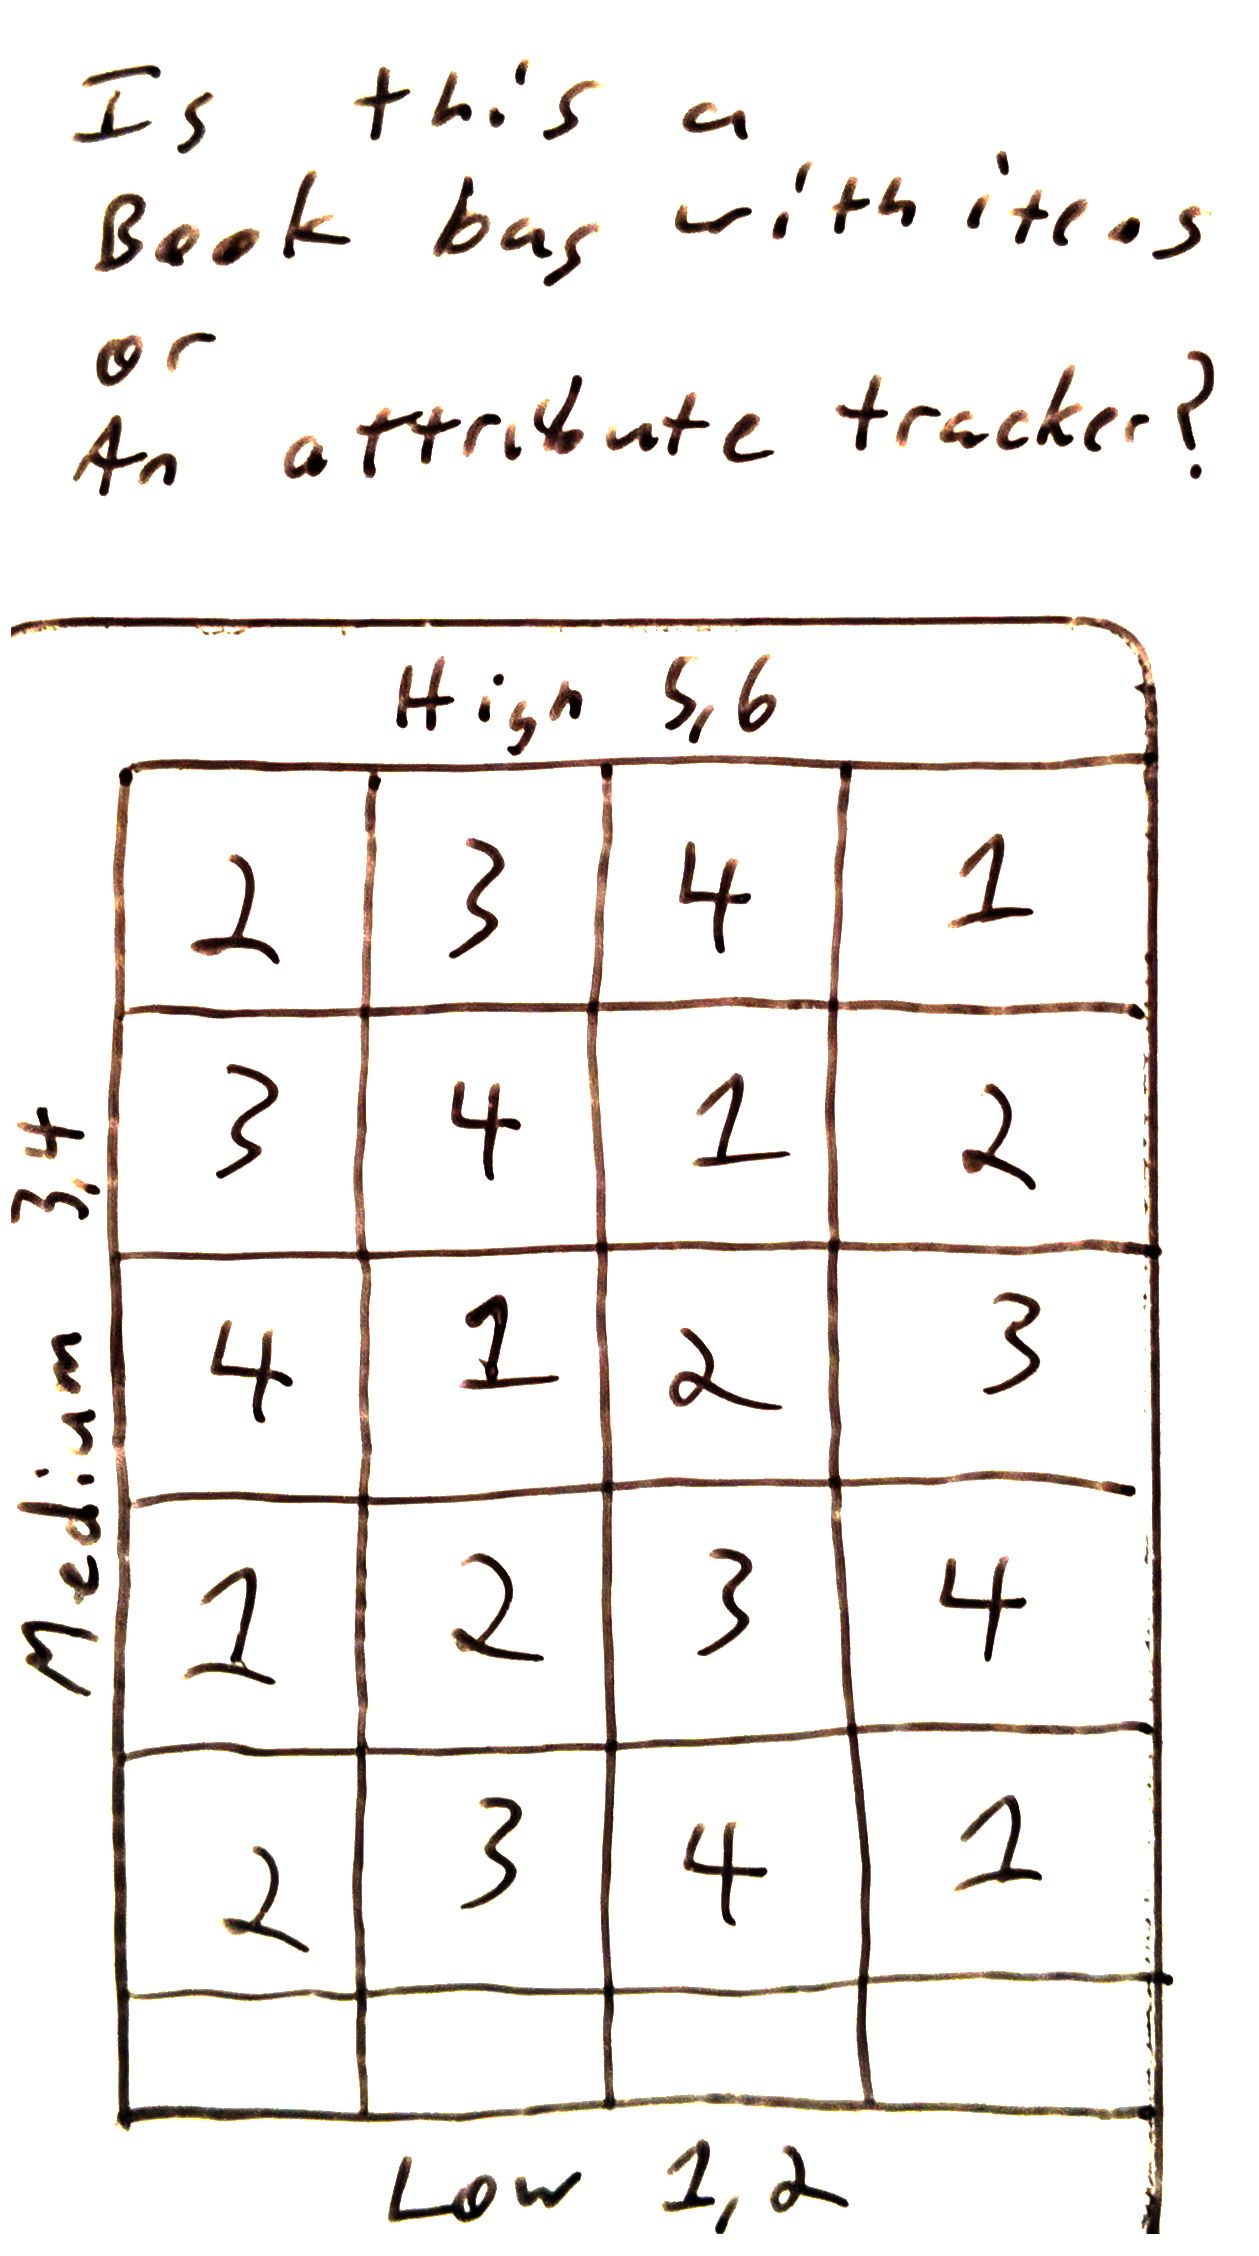 Is this a
Book bag with items
or
An attribute tracker?
High 5,6
2 3 4 1
3 4 1 2
Medium 3,4
4 1 2 3
1 2 3 4
2 3 4 1
Low 1,2